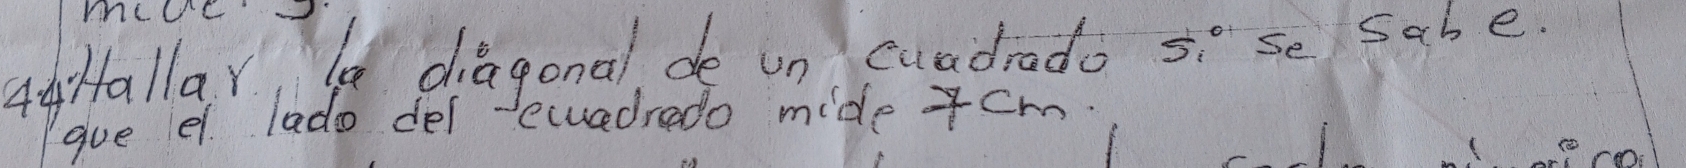 mide
44 Hallar la diagonal de un cuadrado si se sabe.
que el lado del cuadrado mide 7 cm.